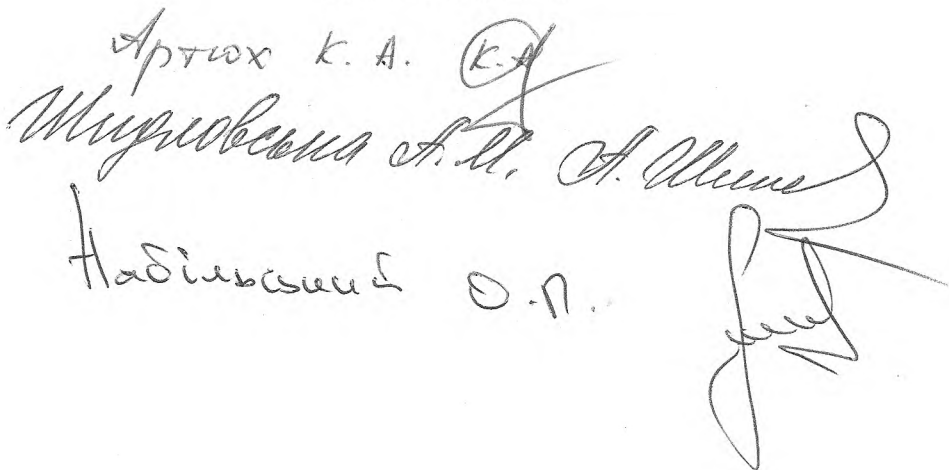 Артюх К. А. К.А
Шидловська А.М. А. Шид
Набільський О.П.